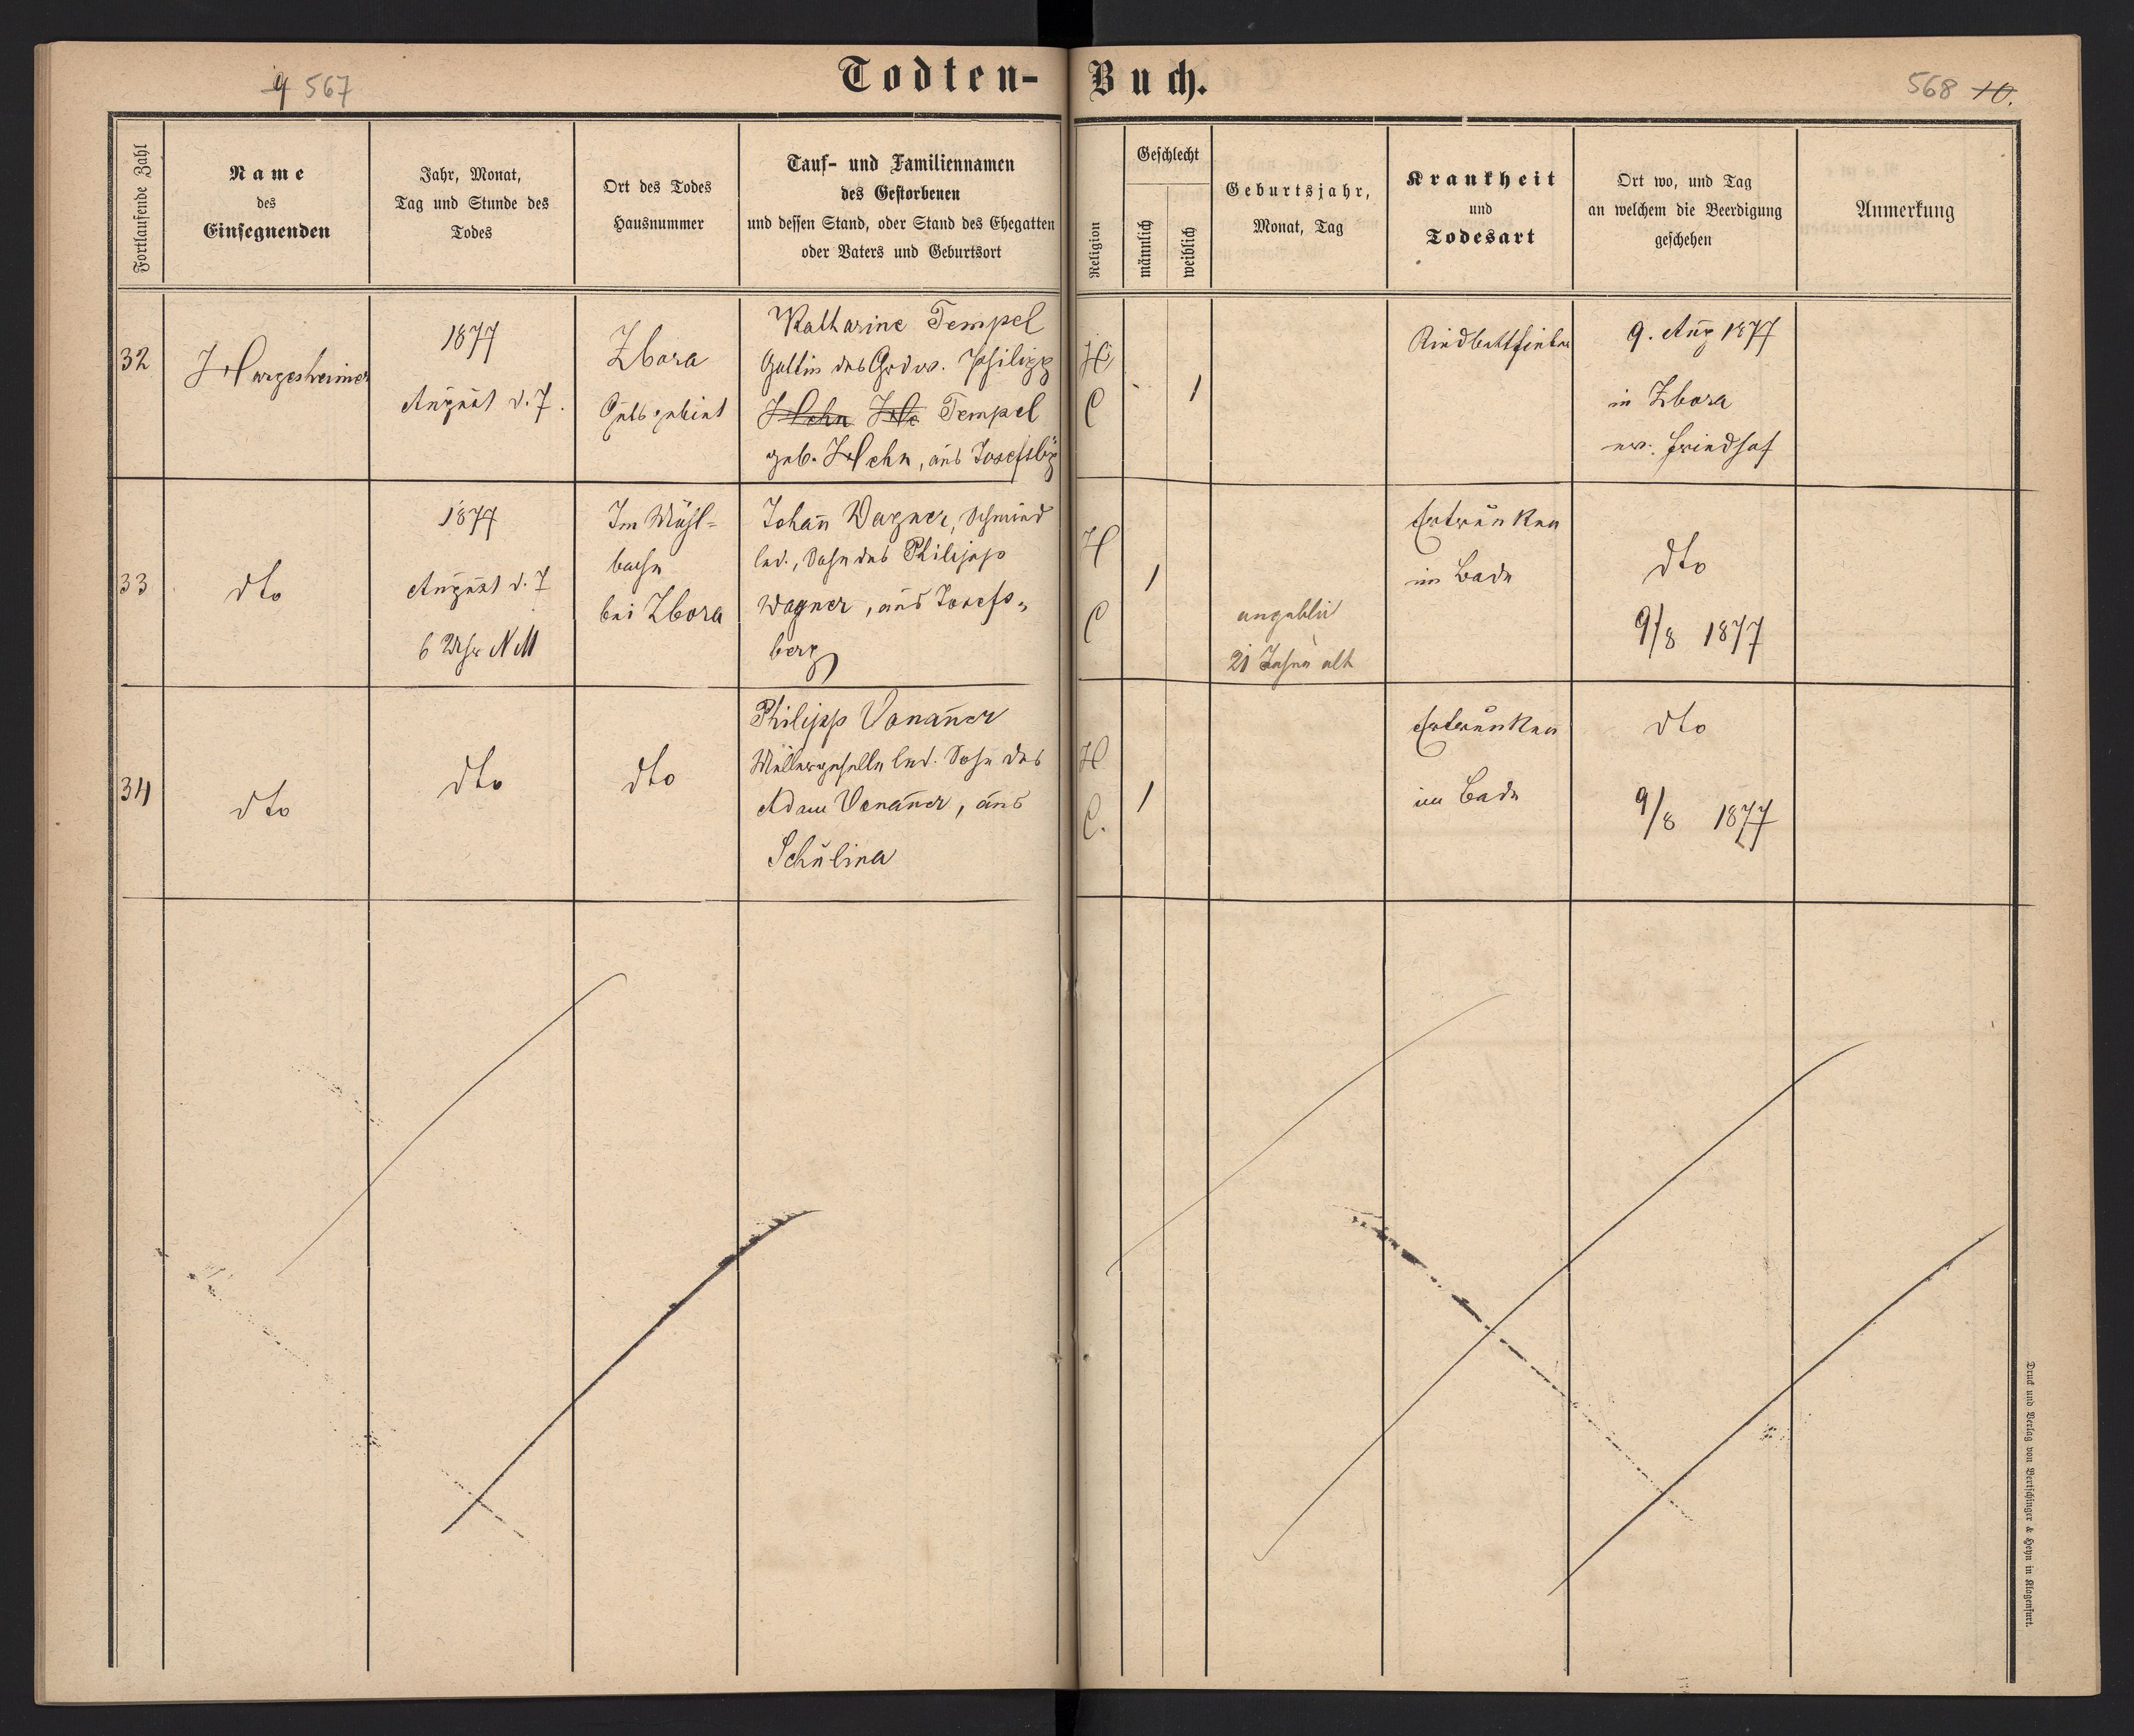 9 567
Todten-Buch.
568 10.
Fortlaufende Zahl
Name
des
Einsegnenden
Jahr, Monat,
Tag und Stunde des
Todes
Ort des Todes
Hausnummer
Tauf- und Familiennamen
des Gestorbenen
und dessen Stand, oder Stand des Ehegatten
oder Vaters und Geburtsort
Religion
Geschlecht
männlich
weiblich
Geburtsjahr,
Monat, Tag
Krankheit
und
Todesart
Ort wo, und Tag
an welchem die Beerdigung
geschehen
Anmerkung
32
Hargesheimer
1877
August d. 7.
Zbora
Gutsgebiet
Katharine Tempel
Gattin des Grdw. Philipp
Hehn He Tempel
geb. Hehn, aus Josefsbg
H
C
1
Kindbettfieber
9. Aug 1877
in Zbora
ev. Friedhof
33
dto
1877
August d. 7
6 Uhr NM
Im Mühl-
bache
bei Zbora
Johañ Wagner, Schmied
led., Sohn des Philipp
Wagner, aus Josefs-
berg
H
C
1
angeblich
21 Jahre alt
Ertrunken
im Bade
dto
9/8 1877
34
dto
dto
dto
Philipp Vonañer
Müllergeselle led. Sohn des
Adam Vonañer, aus
Schulina
H
C.
1
Ertrunken
im Bade
dto
9/8 1877
Druck und Verlag von Bertschinger & Heyn in Klagenfurt.